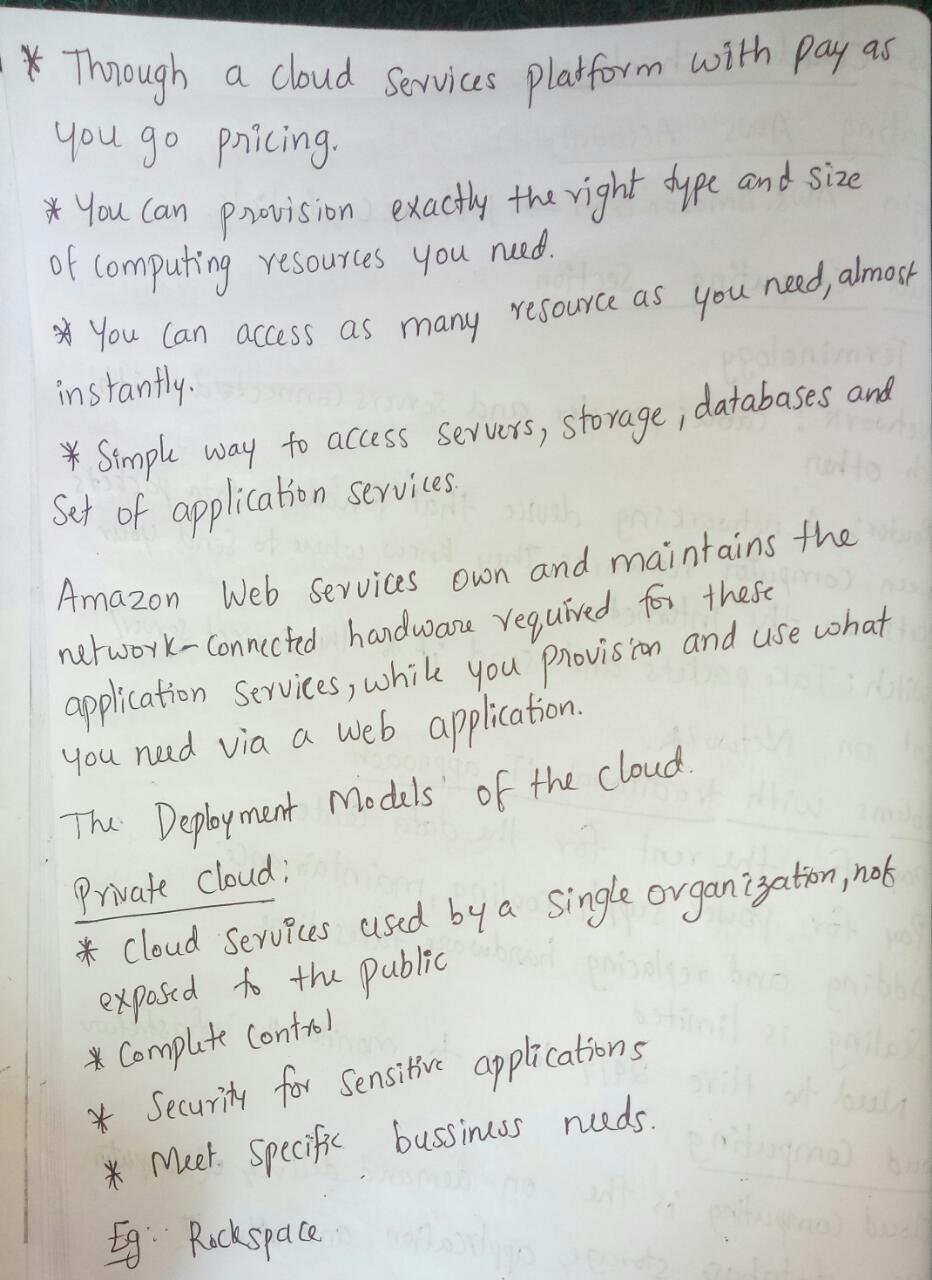 * Through a cloud services platform with pay as
you go pricing.
* You can provision exactly the right type and size
of computing resources you need.
* You can access as many resource as you need, almost
instantly.
* Simple way to access servers, storage, databases and
Set of application services.
Amazon Web services own and maintains the
network-connected hardware required for these
application services, while you provision and use what
you need via a web application.
The Deployment Models of the cloud.
Private cloud:
* Cloud services used by a single organization, not
exposed to the public
* Complete Control
* Security for sensitive applications
* Meet specific bussiness needs.
Eg: Rackspace